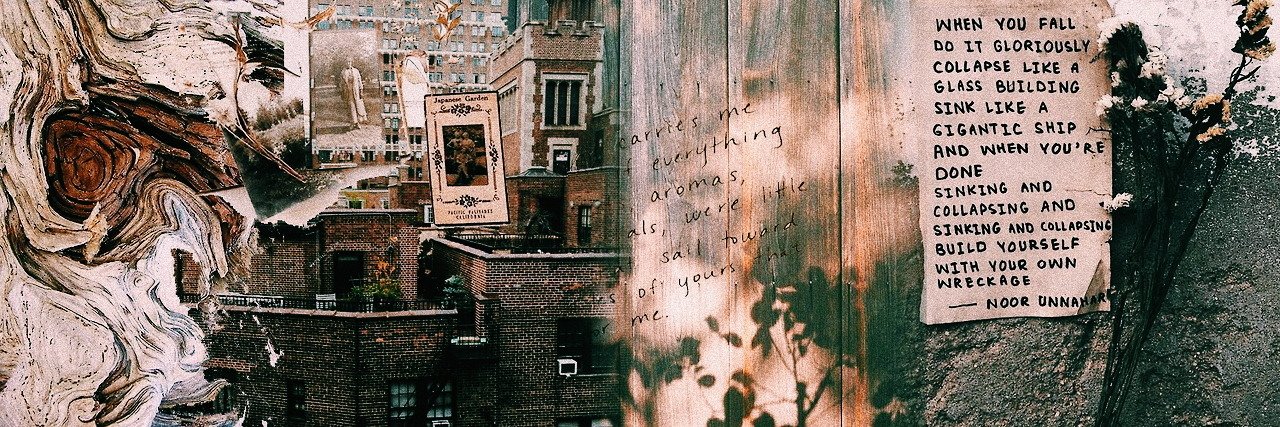 Japanese Garden
PACIFIC PALISADES
CALIFORNIA
carries me
everything
aromas,
als, were little
sail toward
of yours tha
me.
WHEN YOU FALL
DO IT GLORIOUSLY
COLLAPSE LIKE A
GLASS BUILDING
SINK LIKE A
GIGANTIC SHIP
AND WHEN YOU'RE
DONE
SINKING AND
COLLAPSING AND
SINKING AND COLLAPSING
BUILD YOURSELF
WITH YOUR OWN
WRECKAGE
— NOOR UNNAHAR